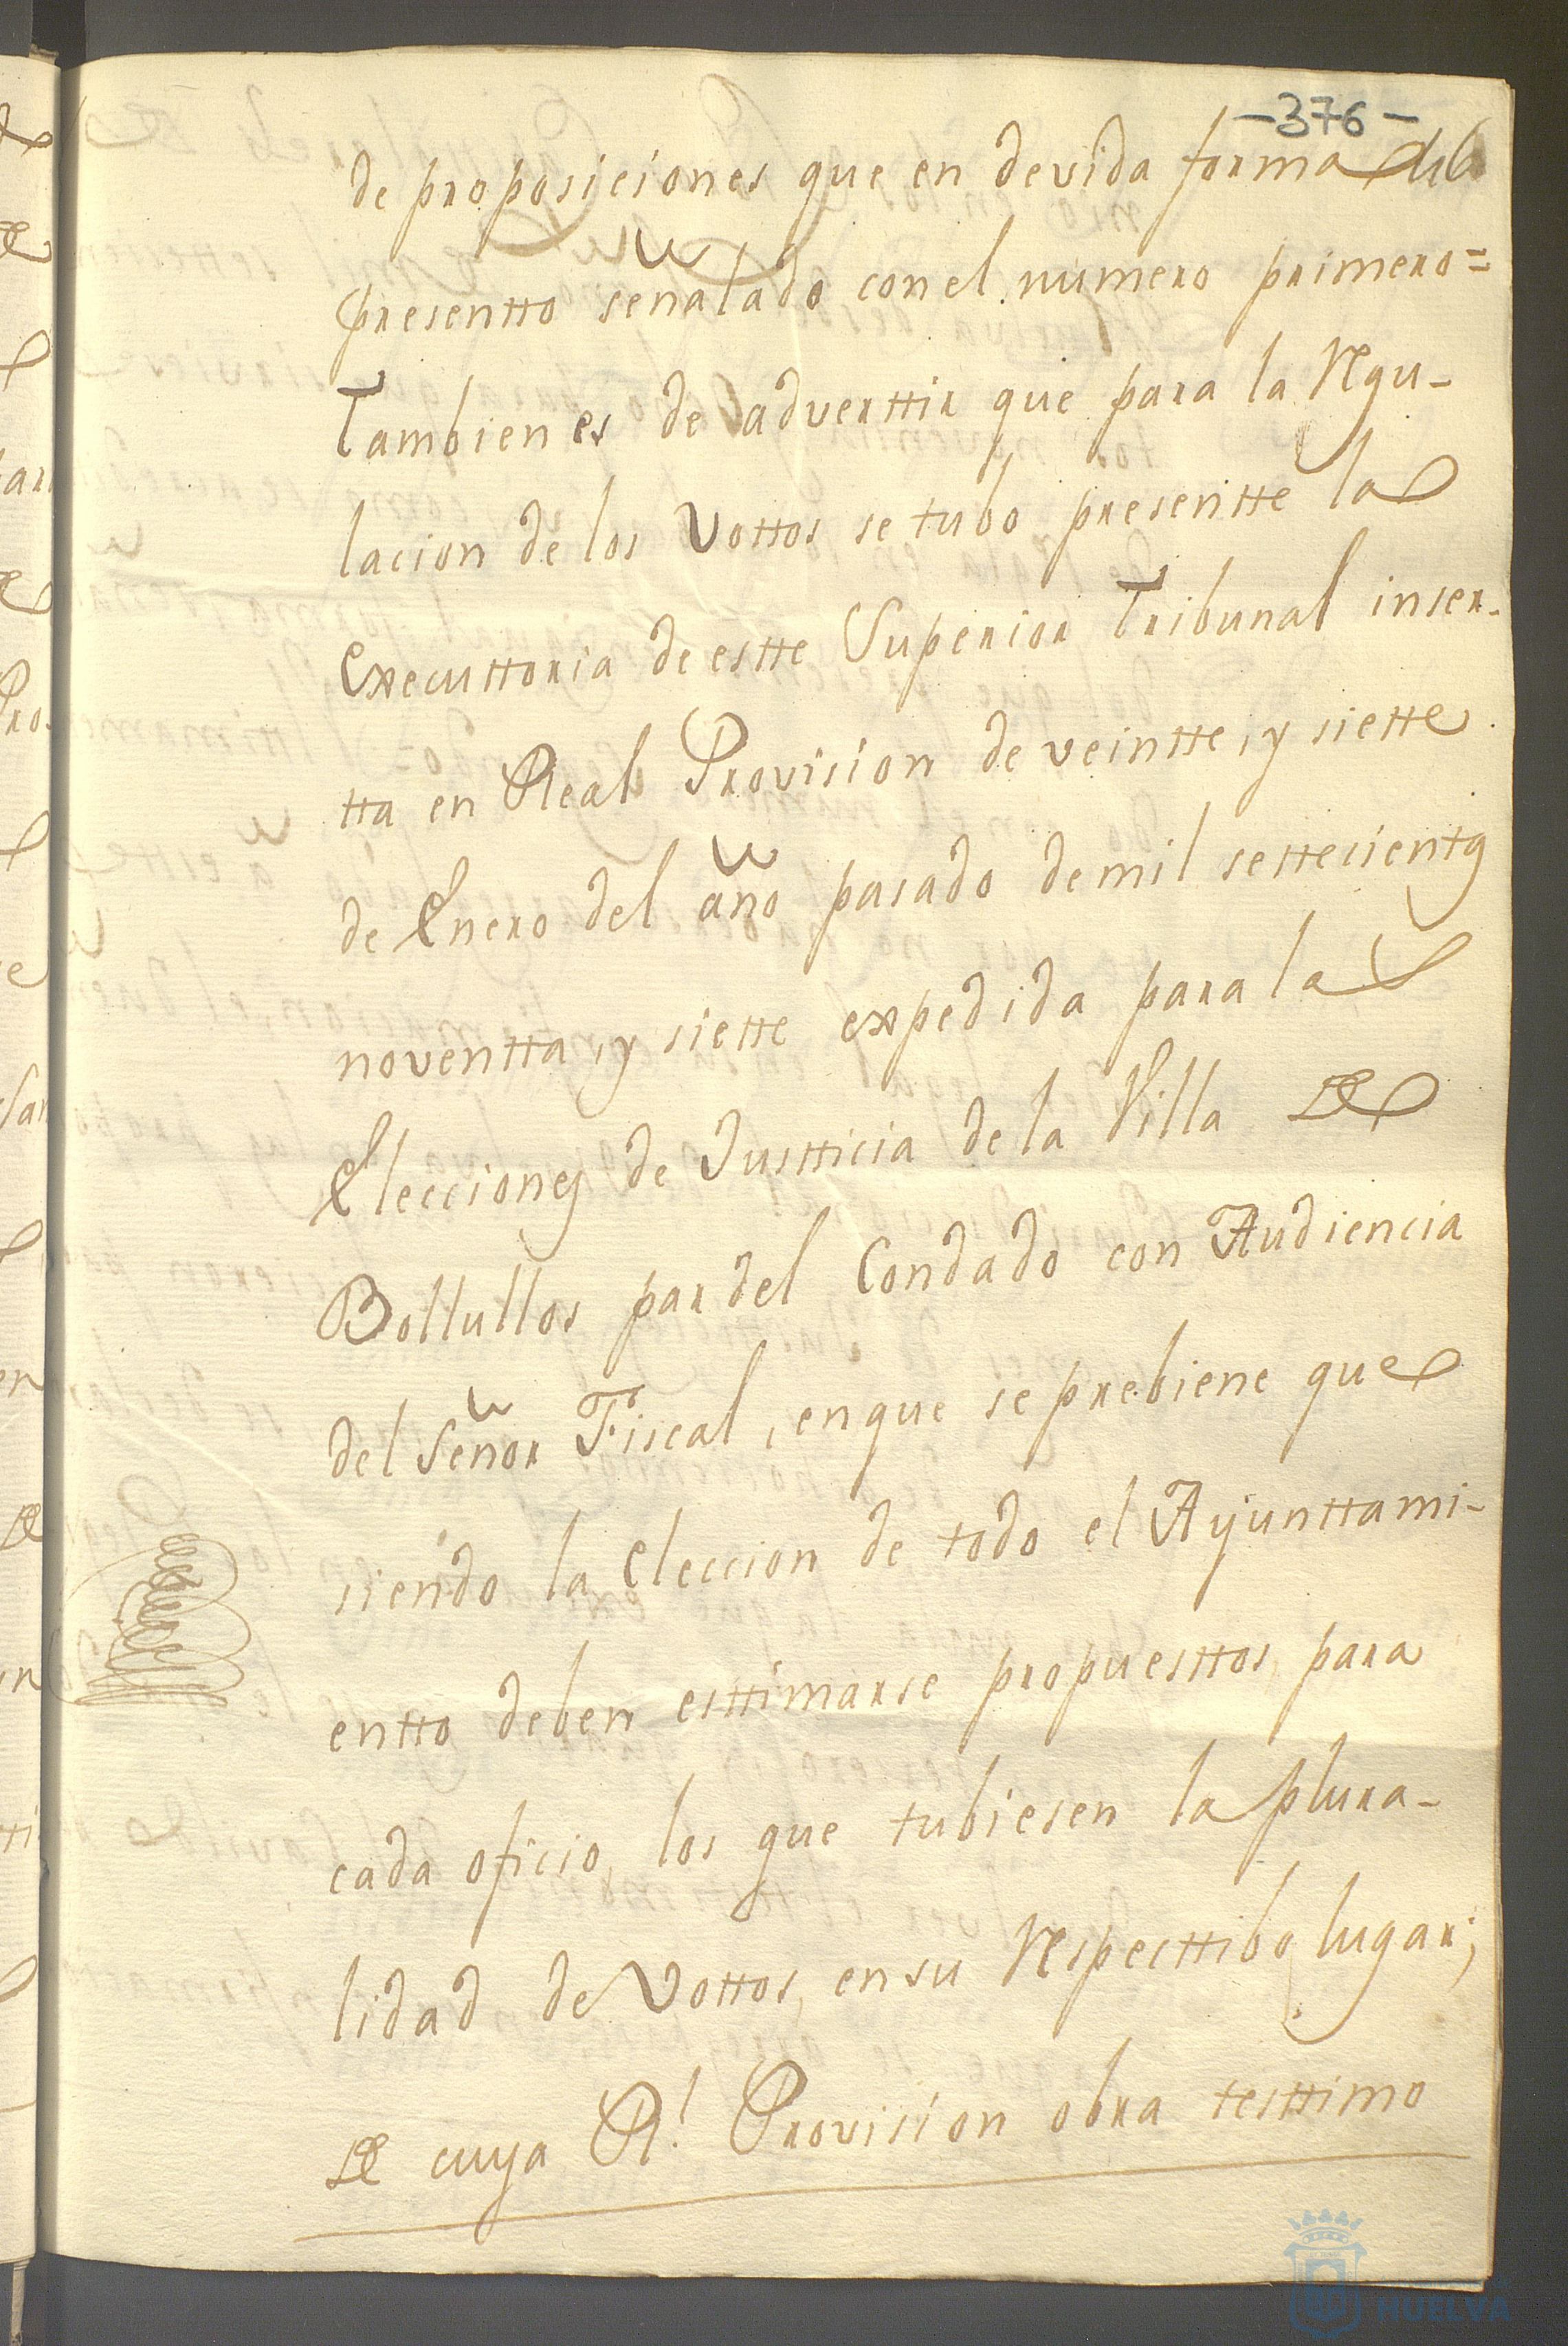 -376-
de proposiciones que en devida forma
presentto señalado con el numero primero=
Tambien es de adverttir que para la Regu-
lacion de los Vottos se tubo presentte la
executtoria de estte Superior Tribunal inser-
tta en Real Provision de veintte, y siette
de Enero del año pasado de mil settecientos
noventta, y siette expedida para la
Elecciones de Justticia de la Villa de
Bollullos par del Condado con Audiencia
del Señor Fiscal, en que se prebiene que
siendo la eleccion de todo el Ayunttami-
entto deben esttimarse propuesttos para
cada oficio, los que tubiesen la plura-
lidad de Vottos, en su Respecttibo lugar;
de cuya Rl. Provision obra testtimo
HUELVA